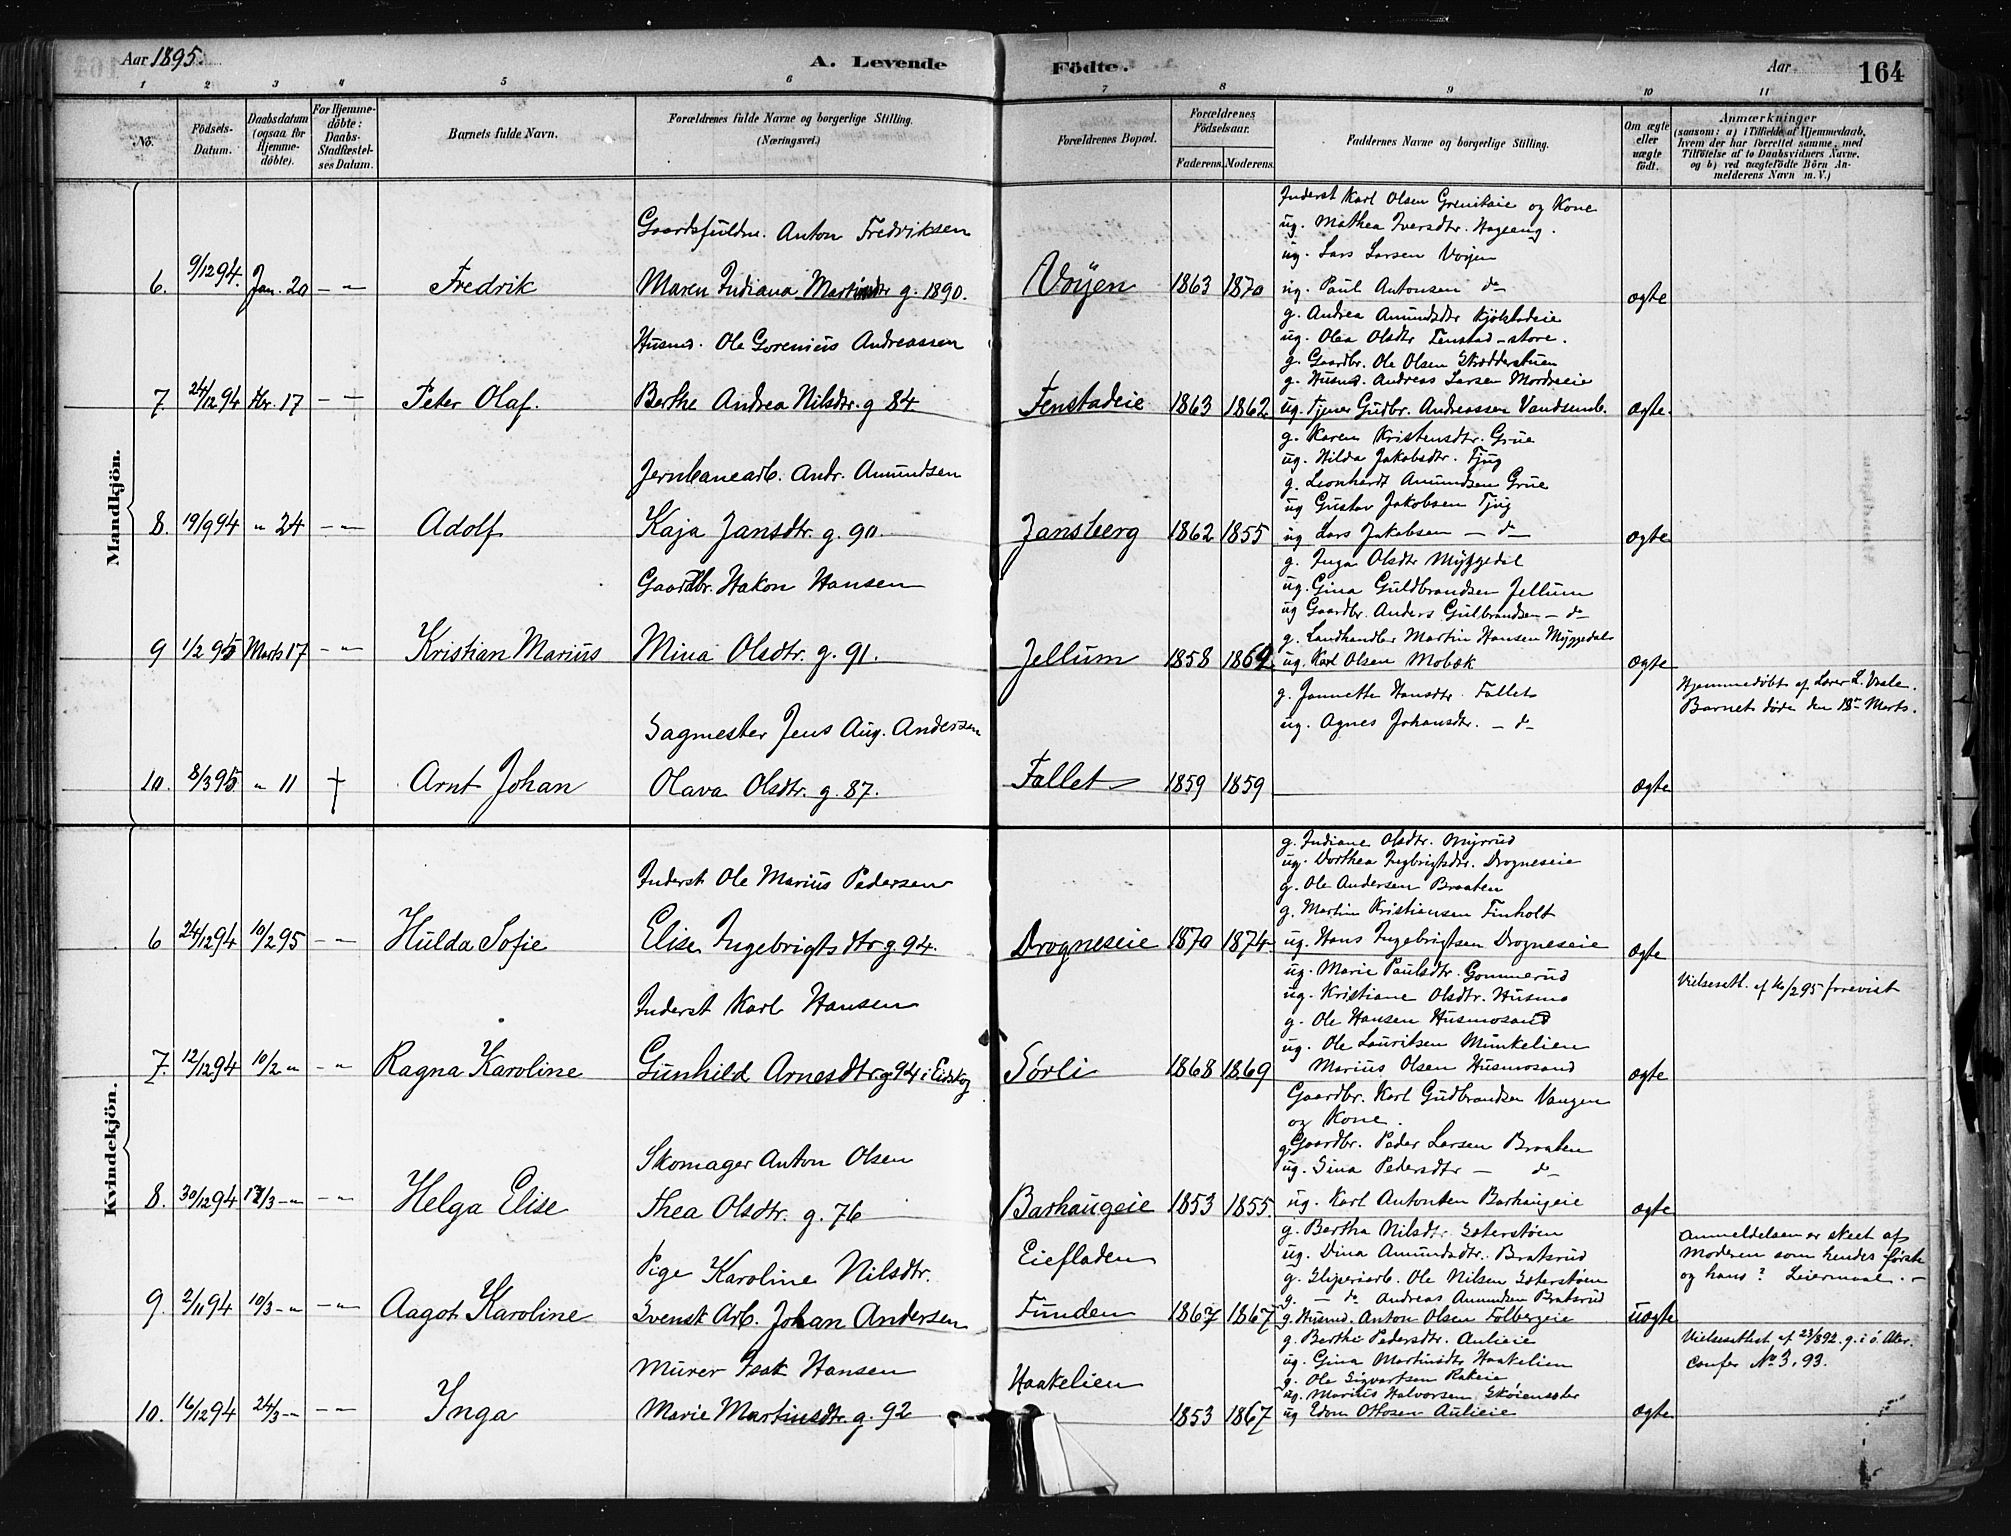 Aar 1895.
A. Levende
Födte.
Aar
164
1 2 3 4 5 6 7 8 9 10 11
No.
Födsels-Datum.
Daabsdatum (ogsaa for Hjemme-döbte).
For Hjemme-döbte: Daabs-Stadfæstel-ses Datum.
Barnets fulde Navn.
Forældrenes fulde Navne og borgerlige Stilling. (Næringsvei.)
Forældrenes Bopæl.
Forældrenes Födselsaar.
Faderens. Moderens.
Faddernes Navne og borgerlige Stilling.
Om ægte eller uægte födt.
Anmærkninger
(saasom: a) i Tilfælde af Hjemmedaab,
hvem der har forrettet samme, med
Tilföielse af to Daabsvidners Navne.
og b) ved uægtefödte Börn An-
melderens Navn m. V.)
Mandkjön.
6. 9/12 94. Jan. 20 - „ Fredrik
Anton Fredriksen
Maren Indiana Martinsdtr g. 1890.
Vöyen 1863 1870
Inderst Karl Olsen Greniteie og Kone
ug. Mathea Iversdtr. Hageeng.
ug. Lars Larsen Vöyen
ug. Paul Antonsen do
g. Andrea Amundsdtr Kjölstadeie
ægte
7. 24/12 94 Fbr. 17 - „ Peter Olaf.
Husmd. Ole Gorenius Andreassen
Berthe Andrea Nilsdtr. g 84.
Fenstadeie 1863 1862
ug. Olea Olsdtr Fenstad-store.
g. Gaardbr. Ole Olsen Skrædderstuen
g. Husmd. Andreas Larsen Mordreeie
ug. Tjener Gudbr. Andreassen
ægte.
8. 19/9 94 „ 24 - „ Adolf
Jernbanearb. Andr. Amundsen
Kaja Jansdtr. g. 90.
Jansberg 1862 1855
g. Karen Kristensdtr. Grue
ug. Hilda Jakobsdtr. Tjug
g. Leonhardt Amundsen Grue
ug Gustav Jakobsen Tjug
ug Lars Jakobsen - do
ægte
9 1/2 95 Marts 17 - „ Kristian Marius
Gaardbr. Hakon Hansen
Mina Olsdtr. g. 91.
Jellum 1858 1869
g. Inga Olsdtr Myggedal
ug. Gina Guldbrandsen Jellum
ug Gaardbr. Anders Gulbrandsen - do
g. Landhandler Martin Hansen Myggedal
ug. Karl Olsen Mobæk
ægte
10. 8/3 95 „ 11 † Arnt Johan
Sagmester Jens Aug. Andersen
Olava Olsdtr. g. 87.
Fallet 1859 1859
g. Jannette Hansdtr. Fallet
ug. Agnes Johansdtr. - do
ægte
Hjemmedøbt af Lærer L. Vasle.
Barnet døde den 18de Marts.
Kvindekjön.
6 24/12 94 10/2 95 - „ Hulda Sofie
Inderst Ole Marius Pedersen
Elise Ingebrigtsdtr g 94.
Drogneseie 1870 1874
g. Indiane Olsdtr. Myrrud
ug. Dorthea Ingbrigtsdtr. Drogneseie
g. Ole Andersen Braaten
g. Martin Kristiansen Finholt
ug. Hans Ingebrigtsen Drogneseie
ægte
7. 12/12 94 10/2 „ - „ Ragna Karoline
Inderst Karl Hansen
Gunhild Arnesdtr. g 94 i Eidskog
Sørli 1868 1869
ug. Marie Paulsdtr. Gommerud
ug. Kristiane Olsdtr. Husmo
g. Ole Hansen Husmosand
ug. Ole Lauritsen Munkelien
Marius Olsen Husmosand
ægte
Vielsesatt. af 10/2 95 forevist
8. 30/12 94 17/3 - „ - „ Helga Elise
Skomager Anton Olsen
Thea Olsdtr. g. 76
Barhaugeie 1853 1855.
Gaardbr. Karl Gudbrandsen Vangen
og Kone.
g. Gaardbr. Peder Larsen Braaten
ug. Gina Pedersdtr - do
ug. Karl Antonsen Barhaugeie
ægte
9. 2/11 94 10/3 - „ - „ Aagot Karoline
Pige Karoline Nilsdtr.
Svensk Arb. Johan Andersen
Eiefladen
Funden 1867 1867
g. Bertha Nilsdtr. Sæterstøen
ug. Dina Amundsdtr. Bratsrud
g. Sliperiarb. Ole Nilsen Sæterstøen
g. - do Andreas Amundsen Bratsrud
g. Husmd. Anton Olsen Folbergeie
uægte
Anmeldelsen er skeet af
Moderen som hendes første
og hans? Leiermaal.
10. 16/12 94 24/3 - „ - „ Inga
Murer Isak Hansen
Marie Martinsdtr. g. 92
Haakelien 1853 1867
g. Berthe Pedersdtr. Aulieie
ug. Gina Martinsdtr Haakelien
g. Ole Sigvartsen Rakeie
ug. Marius Halvorsen Skøiensæter
ug Edvin Ottosen Aulieie
ægte
Vielsesattest af 23/8 92. g. i ö. Aker.
Confer No 3, 93.